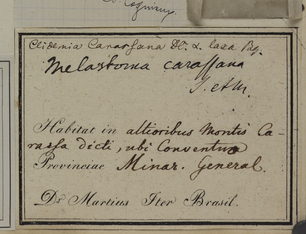 Clidemia Carassana DC. α. laxa
Melastoma carassana
Habitat in altioribus Montis Ca-
rassa dicti, ubi Conventus
Provinciae Minar. General.
Dr Martius Iter Brasil.